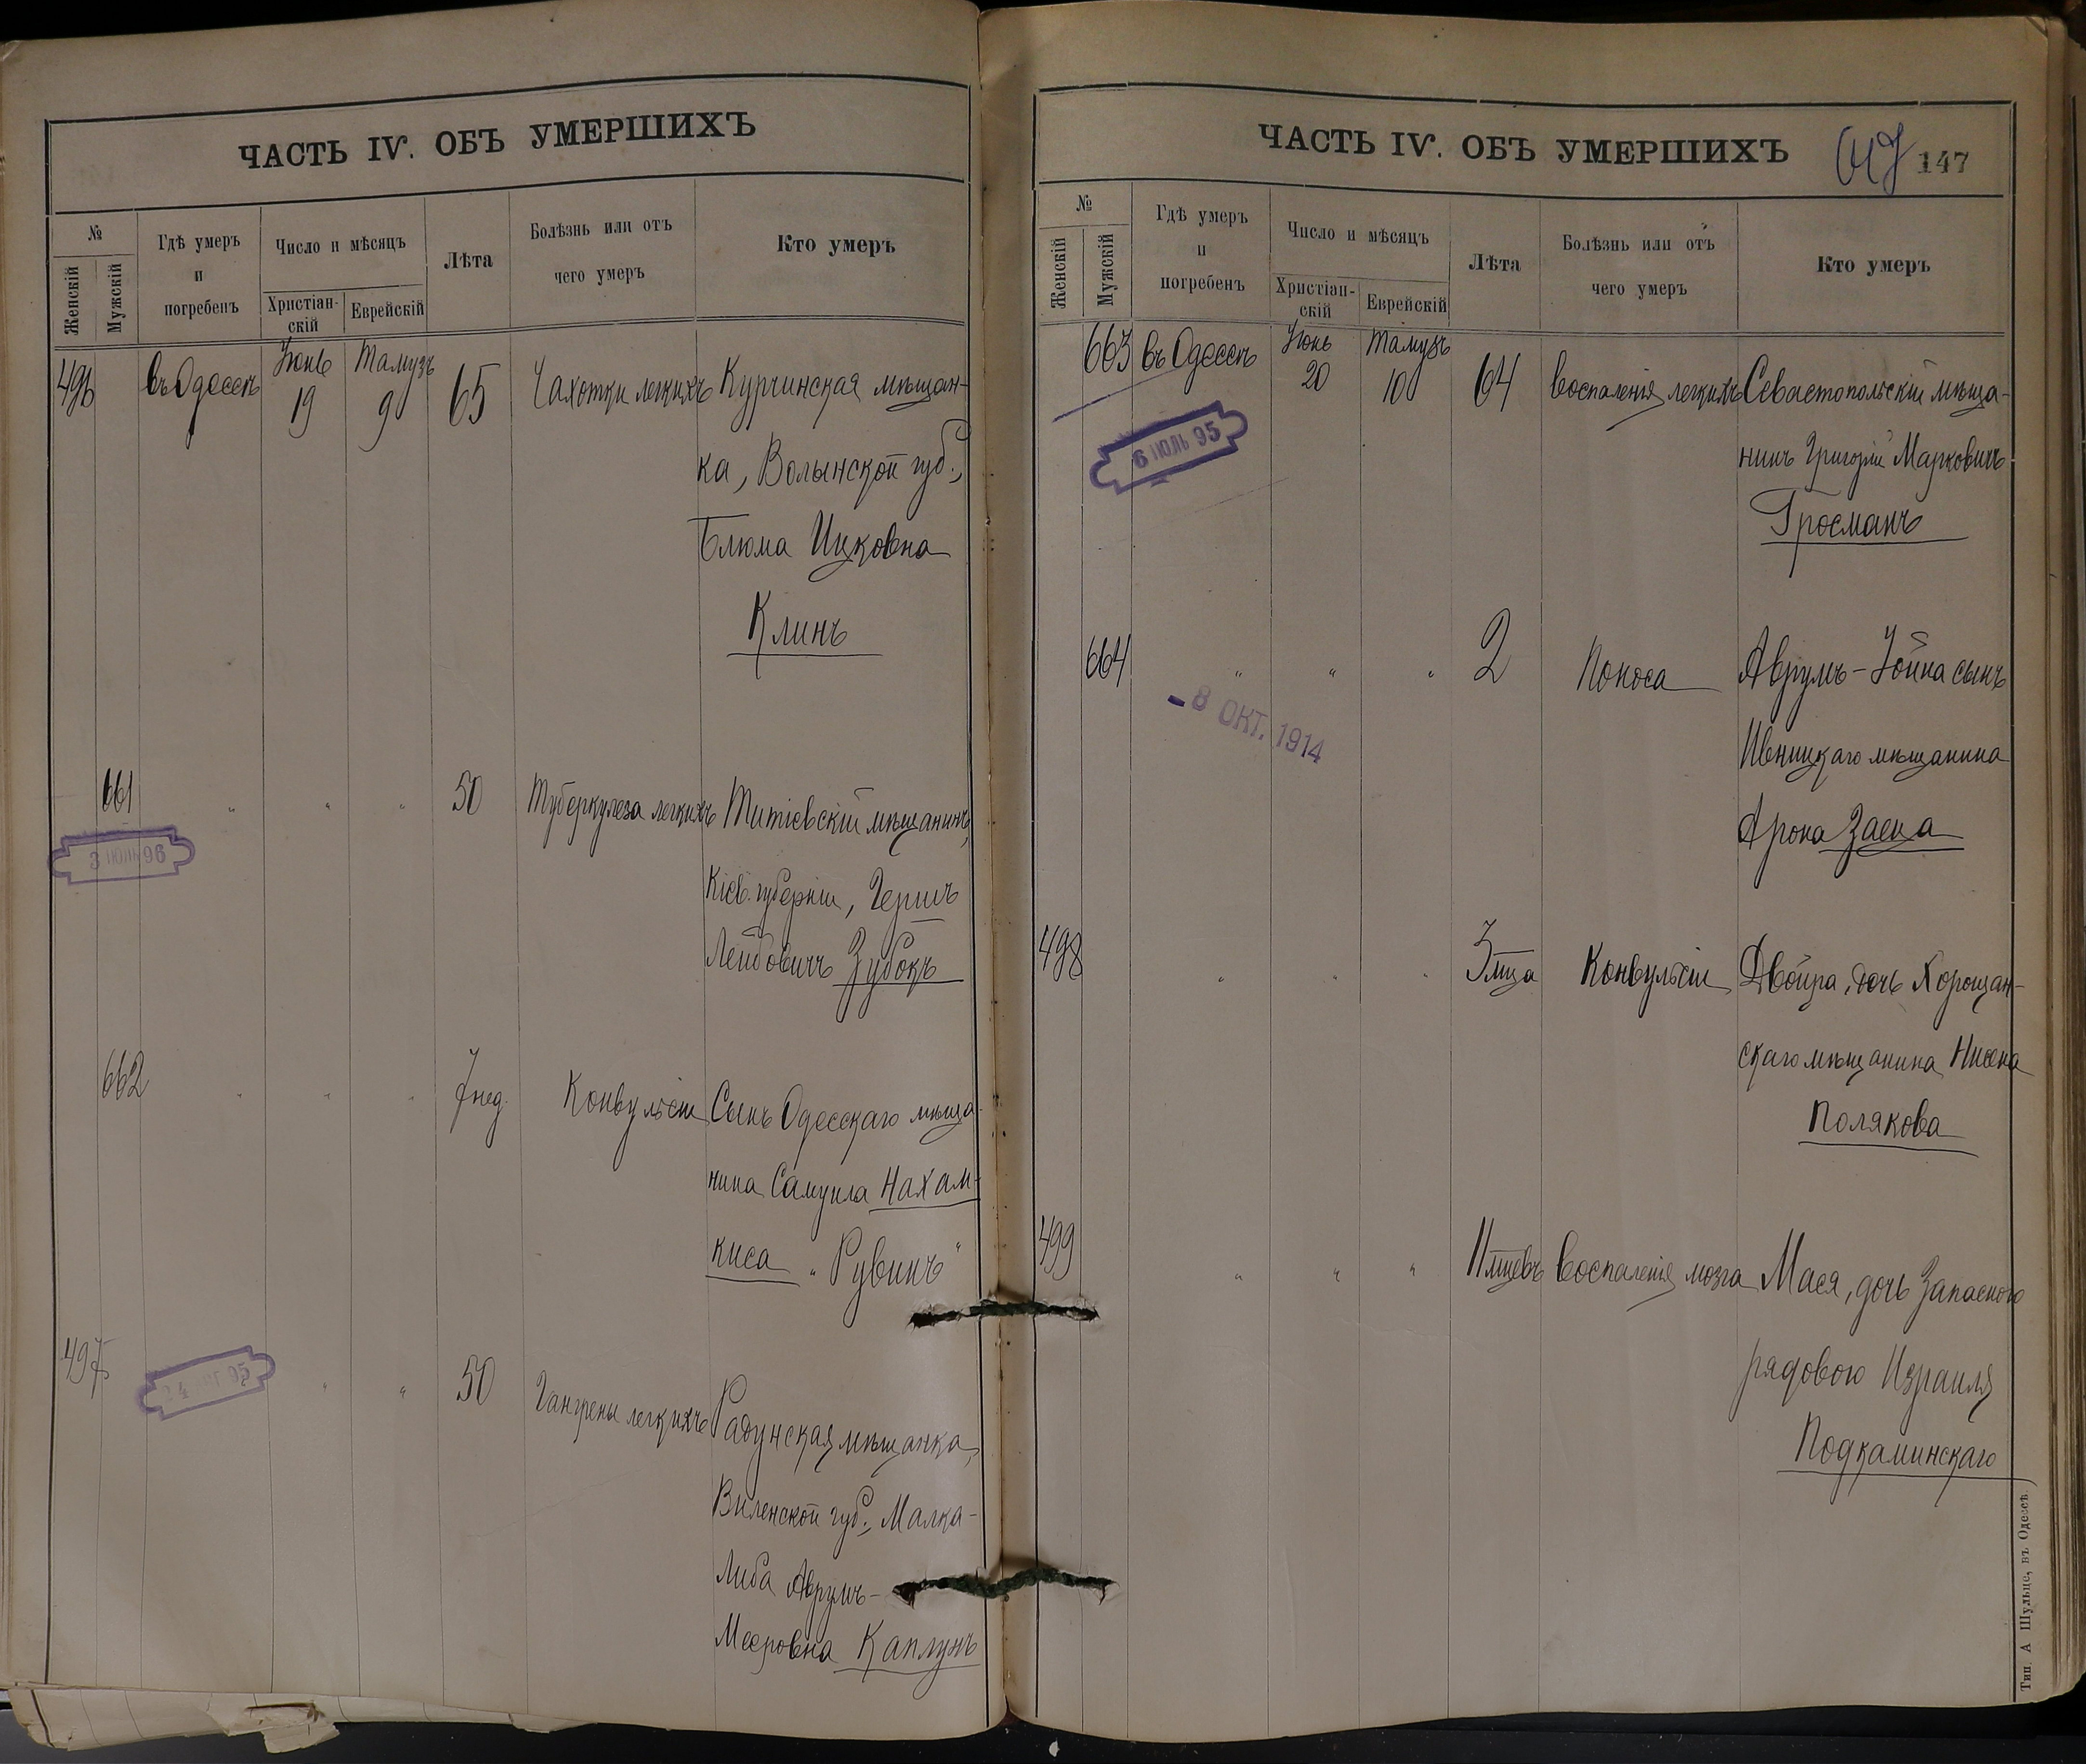 ЧАСТЬ IV. ОБЪ УМЕРШИХЪ
№
Женскій
Мужскій
Гдѣ умеръ
и
погребенъ
Число и мѣсяцъ
Христіан-
скій
Еврейскій
Лѣта
Болѣзнь или отъ
чего умеръ
Кто умеръ
496 въ Одессѣ Іюнь 19 Тамузъ 9 65 Чахотки легкихъ Курчинская мѣщан-
ка, Волынской губ.,
Блюма Ицковна
Клинъ
661 " " " 50 Туберкулеза легкихъ Титіевскій мѣщанинъ,
3 ІЮЛЬ 96
Кіев. губерніи, Гершъ
Лейбовичъ Зубокъ
662 " " " 7 нед. Конвульсіи Сынъ Одесскаго мѣща-
нина Самуила Нахам-
киса "Рувинъ"
497 " " 50 Гангрены легкихъ Радунская мѣщанка,
Виленской губ., Малка-
Либа Аврумъ-
Мееровна Каплунъ
ЧАСТЬ IV. ОБЪ УМЕРШИХЪ
147
№
Женскій
Мужскій
Гдѣ умеръ
и
погребенъ
Число и мѣсяцъ
Христіан-
скій
Еврейскій
Лѣта
Болѣзнь или отъ
чего умеръ
Кто умеръ
663 въ Одессѣ Іюнь 20 Тамузъ 10 64 воспаленія легкихъ Севастопольскій мѣща-
6 ІЮЛЬ 95
нинъ Григорій Марковичъ
Гросманъ
664 " " " 2 Поноса Аврумъ-Іойна сынъ
- 8 ОКТ. 1914
Ивницкаго мѣщанина
Арона Заеца
498 " " " 3 мца Конвульсіи Двойра, дочь Хорощан-
скаго мѣщанина Нисена
Полякова
499 " " " 11 мцевъ воспаленія мозга Мася, дочь Запасного
рядового Израиля
Подкаминскаго
Тип. А Шульце, въ Одессѣ.